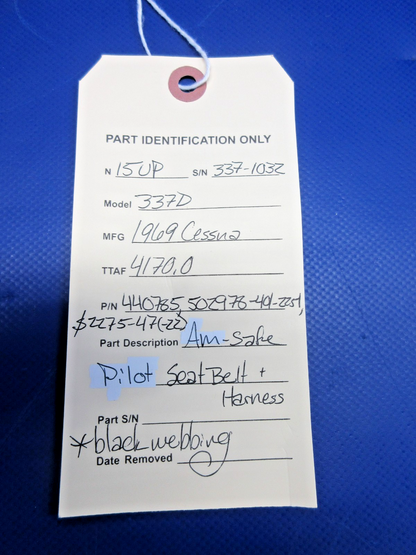 PART IDENTIFICATION ONLY
N 15UP S/N 337-1032
Model 337D
MFG 1969 Cessna
TTAF 4170.0
P/N 440785, 502978-401-2251,
S2275-47(-22)
Part Description Am-Safe
Pilot Seat Belt +
Harness
Part S/N
*black webbing
Date Removed